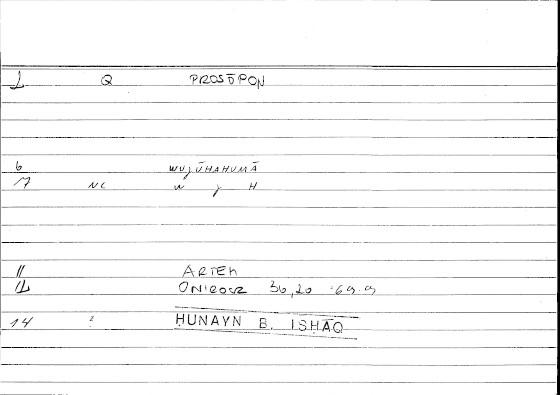 1 Q PROSŌPON
6 WUJŪHAHUMĀ
17 NC W J H
11 ARTEM
12 ONIROCR 36,20
14 ? ḤUNAYN B. ISḤĀQ